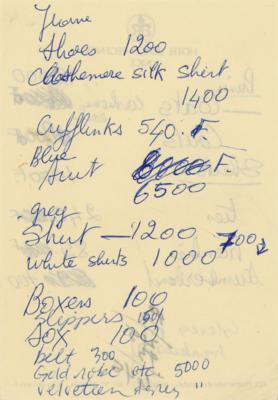 Shoes 1200
Cashemere silk shirt
1400
Cufflinks 540. F.
Blue F.
Suit 6500
grey
Shirt — 1200 700
white shirts 1000
Boxers 100
Slippers 100
Sox 100
belt 300
Gold robe 5000
velveteen "